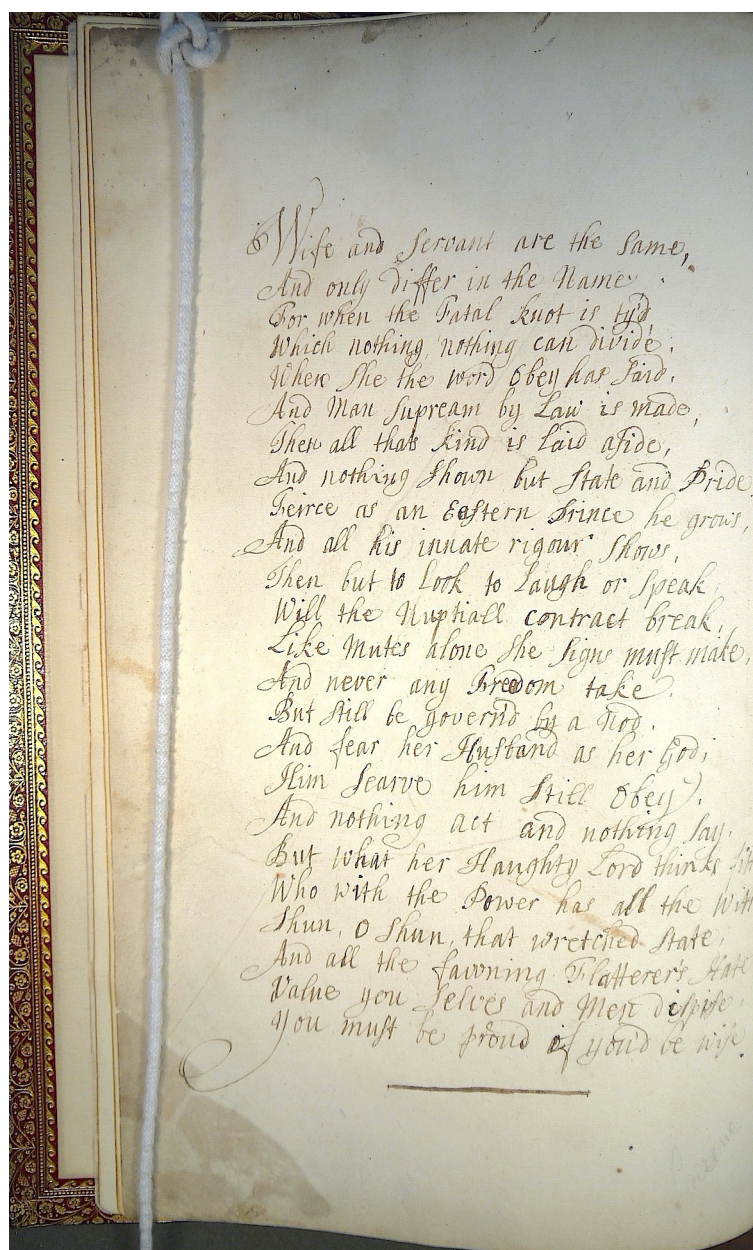 Wife and Servant are the Same,
And only differ in the Name
For when the Fatal knot is ty'd
Which nothing, nothing can divide.
When She the word Obey has Said.
And Man Supream by Law is made,
Then all thats kind is laid aside,
And nothing Shown but State and Pride
Feirce as an Eastern Prince he grows,
And all his innate rigour Shows,
Then but to Look to Laugh or Speak
Will the Nuptiall contract break,
Like Mutes alone She Signs must make,
And never any Freedom take.
But Still be govern'd by a Nod.
And fear her Husband as her God;
Him Searve him Still Obey).
And nothing act and nothing Say.
But what her Haughty Lord thinks
Who with the Power has all the Witt
Shun, O Shun, that wretched State,
And all the fawning Flatterer's Hate
Value you Selves and Men dispise.
You must be proud if you'd be wise.